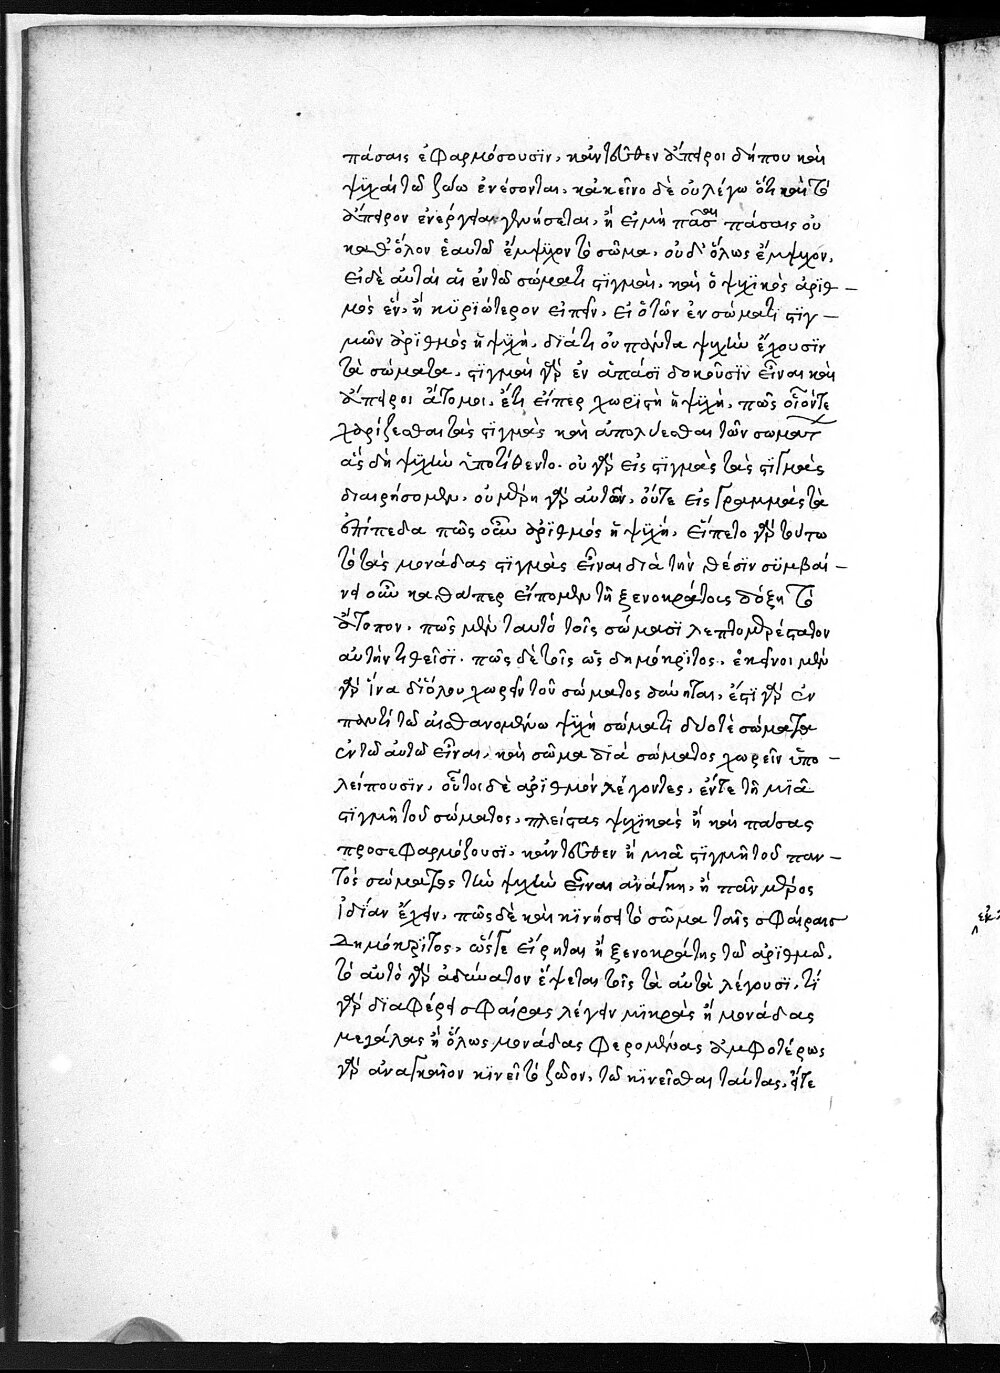 πάσαις ἐφαρμόσουσϊν, κἀντεῦθεν ἄπειροι δήπου καὶ
ψυχαὶ τῶ ζώω ἐνέσονται, κἀκεῖνο δὲ οὐ λέγω ὅτι καὶ τὸ
ἄπειρον ἐνεργείαι γενήσεται, ἢ εἰ μὴ πᾶσαι πάσαις οὐ
καθ' ὅλον ἑαυτῶ ἔμψυχον τὸ σῶμα, οὐδ' ὅλως ἔμψυχον,
εἰ δὲ αὗται αἱ ἐν τῶ σώματι στιγμαὶ, καὶ ὁ ψυχικὸς ἀριθ –
μὸς ἓν, ἢ κυριώτερον εἰπεῖν, εἰ ὁ τῶν ἐν σώματι στιγ –
μῶν ἀριθμὸς ἡ ψυχὴ, διάτι οὐ πάντα ψυχὴν ἔχουσϊν
τὰ σώματα, στιγμαὶ γὰρ ἐν ἅπασϊ δοκοῦσϊν εἶναι καὶ
ἄπειροι ἄτομοι, ἔτι εἴπερ χωριστὴ ἡ ψυχὴ, πῶς οἷόντε
χωρίζεσθαι τὰς στιγμὰς καὶ ἀπολύεσθαι τῶν σωμάτων
ἃς δὴ ψυχὴν ὑποτίθεντο. οὐ γὰρ εἰς στιγμὰς τὰς στιγμὰς
διαιρήσομεν, οὐ μέρη γὰρ αὐτῶν, οὔτε εἰς γραμμὰς τὰ
ἐπίπεδα πῶς οὖν ἀριθμός ἡ ψυχή, εἵπετο γὰρ τούτω
τὸ τὰς μονάδας στιγμὰς εἶναι διὰ τὴν θέσϊν συμβαί –
νει οὖν καθάπερ εἴπομεν τῆ ξενοκράτους δόξη τὸ
ἄτοπον, πῶς μὲν ταυτὸ τοῖς σώμασϊ λεπτομερέστατον
αὐτὴν τιθεῖσϊ. πῶς δὲ τοῖς ὡς δημόκριτος, ἐκεῖνοι μὲν
γὰρ ἵνα διόλου χωρεῖν τοῦ σώματος δύνηται, ἔστι γὰρ ἐν
παντὶ τῶ αἰσθανομένω ψυχὴ σώματι δύο τὲ σώματα
ἐν τῶ αὐτῶ εἶναι, καὶ σῶμα διὰ σώματος χωρεῖν ὑπο –
λείπουσϊν, οὗτοι δὲ ἀριθμὸν λέγοντες, ἔντε τῆ μιᾶ
στιγμῆ τοῦ σώματος, πλείστας ψυχικὰς ἢ καὶ πάσας
προσεφαρμόζουσϊ, κἀντεῦθεν ἢ μιᾶ στιγμῆ τοῦ παν –
τὸς σώματος τὴν ψυχὴν εἶναι ἀνάγκη, ἢ πᾶν μέρος
ἰδίαν ἔχειν, πῶς δὲ καὶ κινήσει τὸ σῶμα ταῖς σφαίραις
Δημόκριτος, ὥστε εἴρηται ἢ ξενοκράτης τῶ ἀριθμῶ,
τὸ αὐτὸ γὰρ ἀδύνατον ἕψεται τοῖς τὰ αὐτὰ λέγουσϊ, τί
γὰρ διαφέρει σφαίρας λέγειν μικρὰς ἢ μονάδας
μεγάλας ἢ ὅλως μονάδας φερομένας ἀμφοτέρως
γὰρ ἀναγκαῖον κινεῖ τὸ ζῶον, τῶ κινεῖσθαι ταύτας, ὅτε